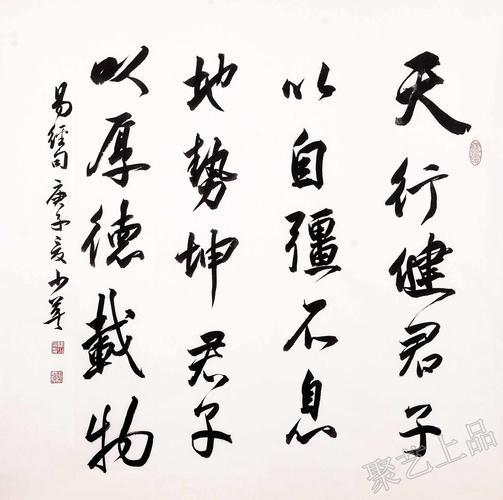 天行健君子
以自彊不息
地勢坤君子
以厚德載物
易經句 庚子夏 少華
聚艺上品